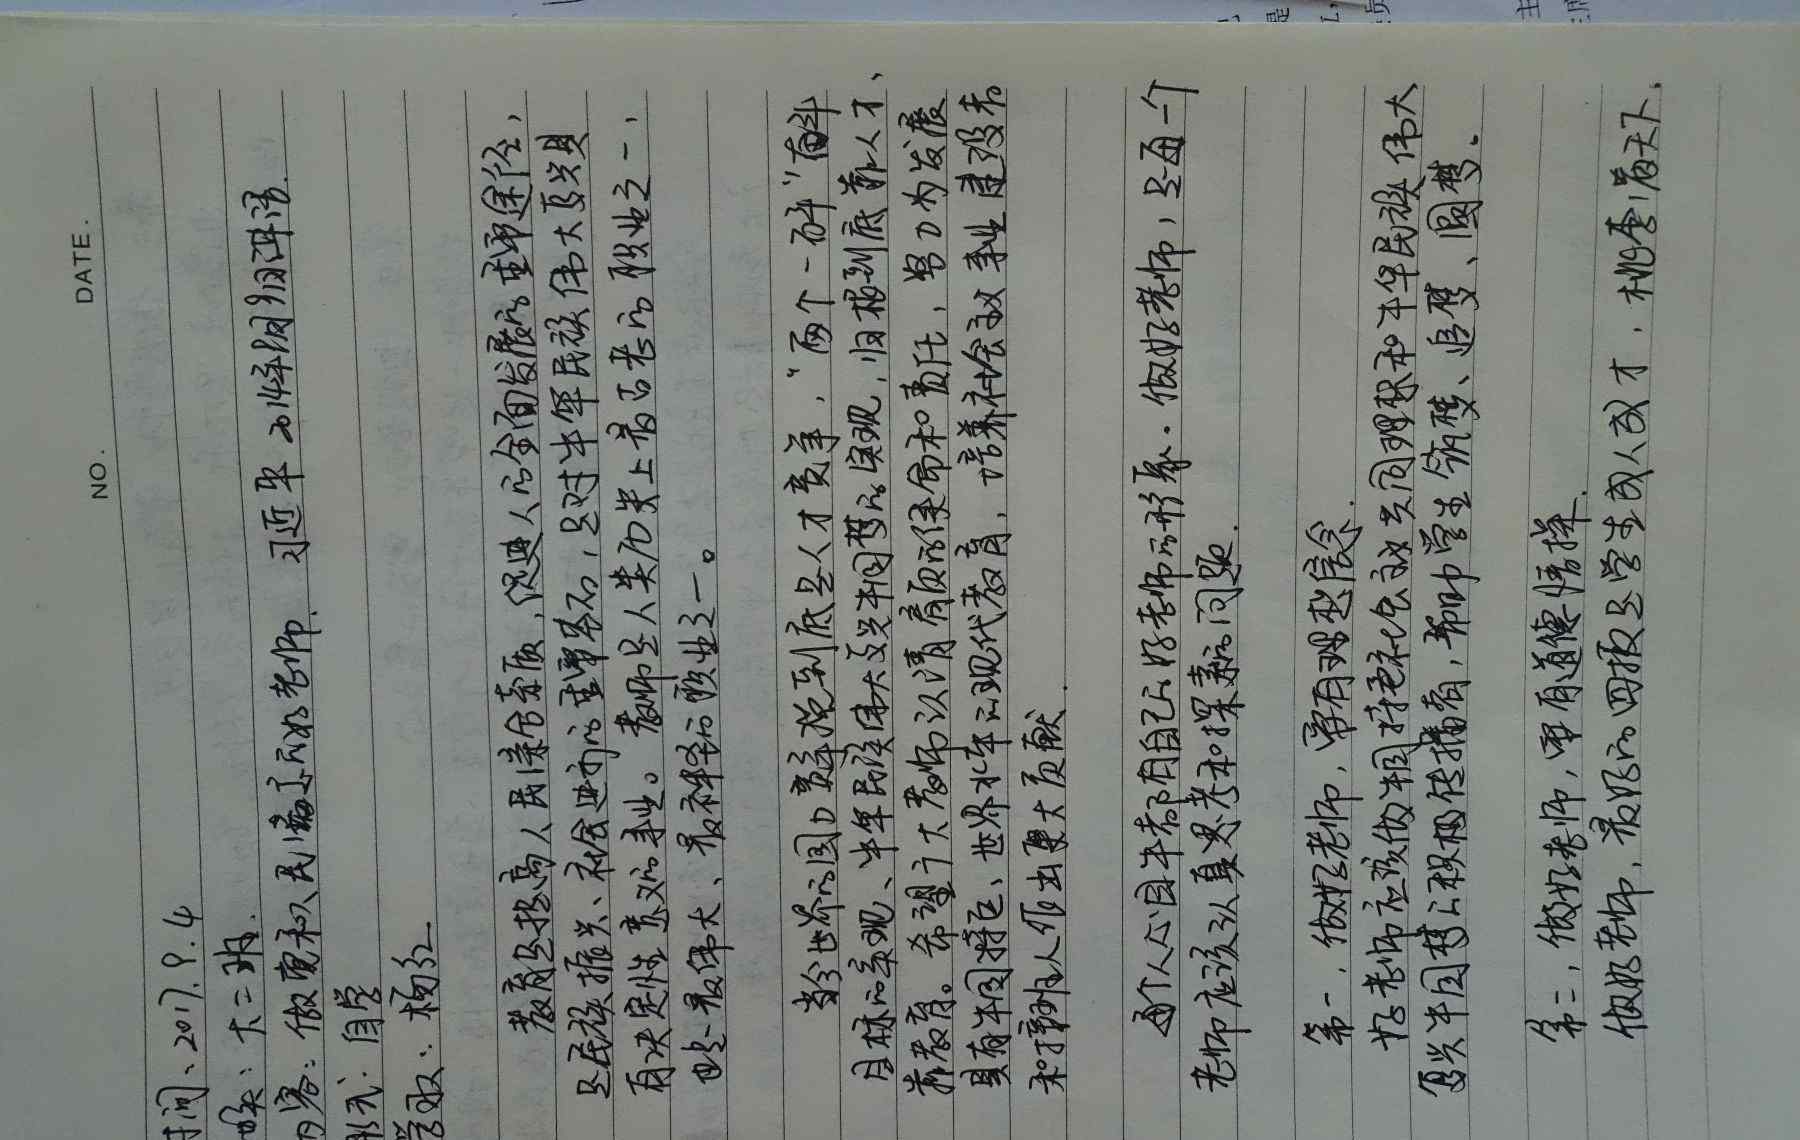 NO.
DATE.
时间:2017.9.4
地点:大二班.
内容:做党和人民满意的好老师. 习近平 2014年9月9日讲话.
形式:自学
学习:杨红
教育是提高人民综合素质,促进人的全面发展的重要途径,
是民族振兴、社会进步的重要基石,是对中华民族伟大复兴具
有决定性意义的事业。教师是人类历史上最古老的职业之一,
也是最伟大、最神圣的职业之一。
当今世界的国力竞争说到底是人才竞争,“两个一百年”奋斗
目标的实现、中华民族伟大复兴中国梦的实现,归根到底靠人才、
靠教育。希望广大教师认清肩负的使命和责任,努力为发展
具有中国特色、世界水平的现代教育,培养社会主义事业建设者
和接班人作出更大贡献.
每个人心目中都有自己好老师的形象.做好老师,是每一个
老师应该认真思考和探索的问题.
第一,做好老师,要有理想信念.
好老师应该做中国特色社会主义共同理想和中华民族伟大
复兴中国梦的积极传播者,帮助学生筑梦、追梦、圆梦。
第二,做好老师,要有道德情操.
做好老师,最好的回报是学生成人成才,桃李满天下.